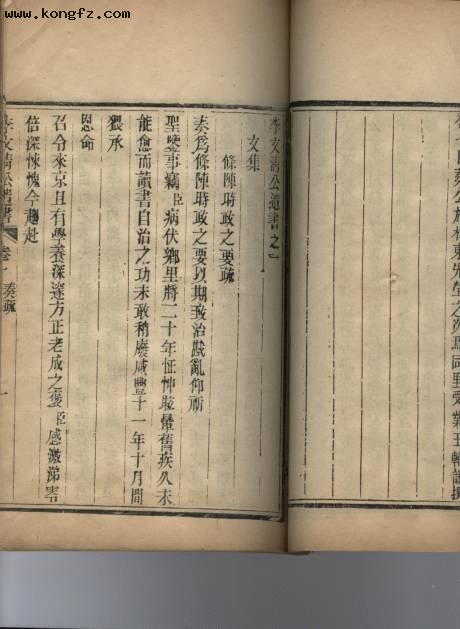 www.kongfz.com
www.kongfz.com
李文清公遺書之一
文集
條陳時政之要疏
奏爲條陳時政之要以期致治戡亂仰祈
聖鑒事竊臣病伏鄉里將二十年怔忡眩暈舊疾久未
能愈而讀書自治之功未敢稍廢咸豐十一年十月間
猥承
恩命
召令來京且有學養深邃方正老成之褒臣感激涕零
倍深悚愧今趨赴
李文清公遺書 卷一 奏疏 一